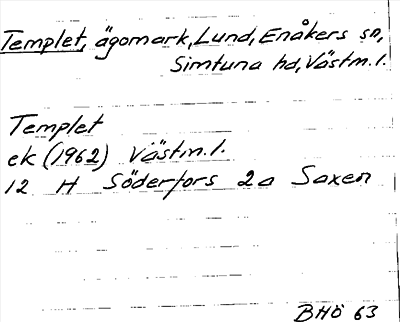 Templet, ägomark, Lund, Enåkers sn,
Simtuna hd, Västm.l.
Templet
ek (1962) Västm.l.
12 H Söderfors 2a Saxen
BHÖ 63